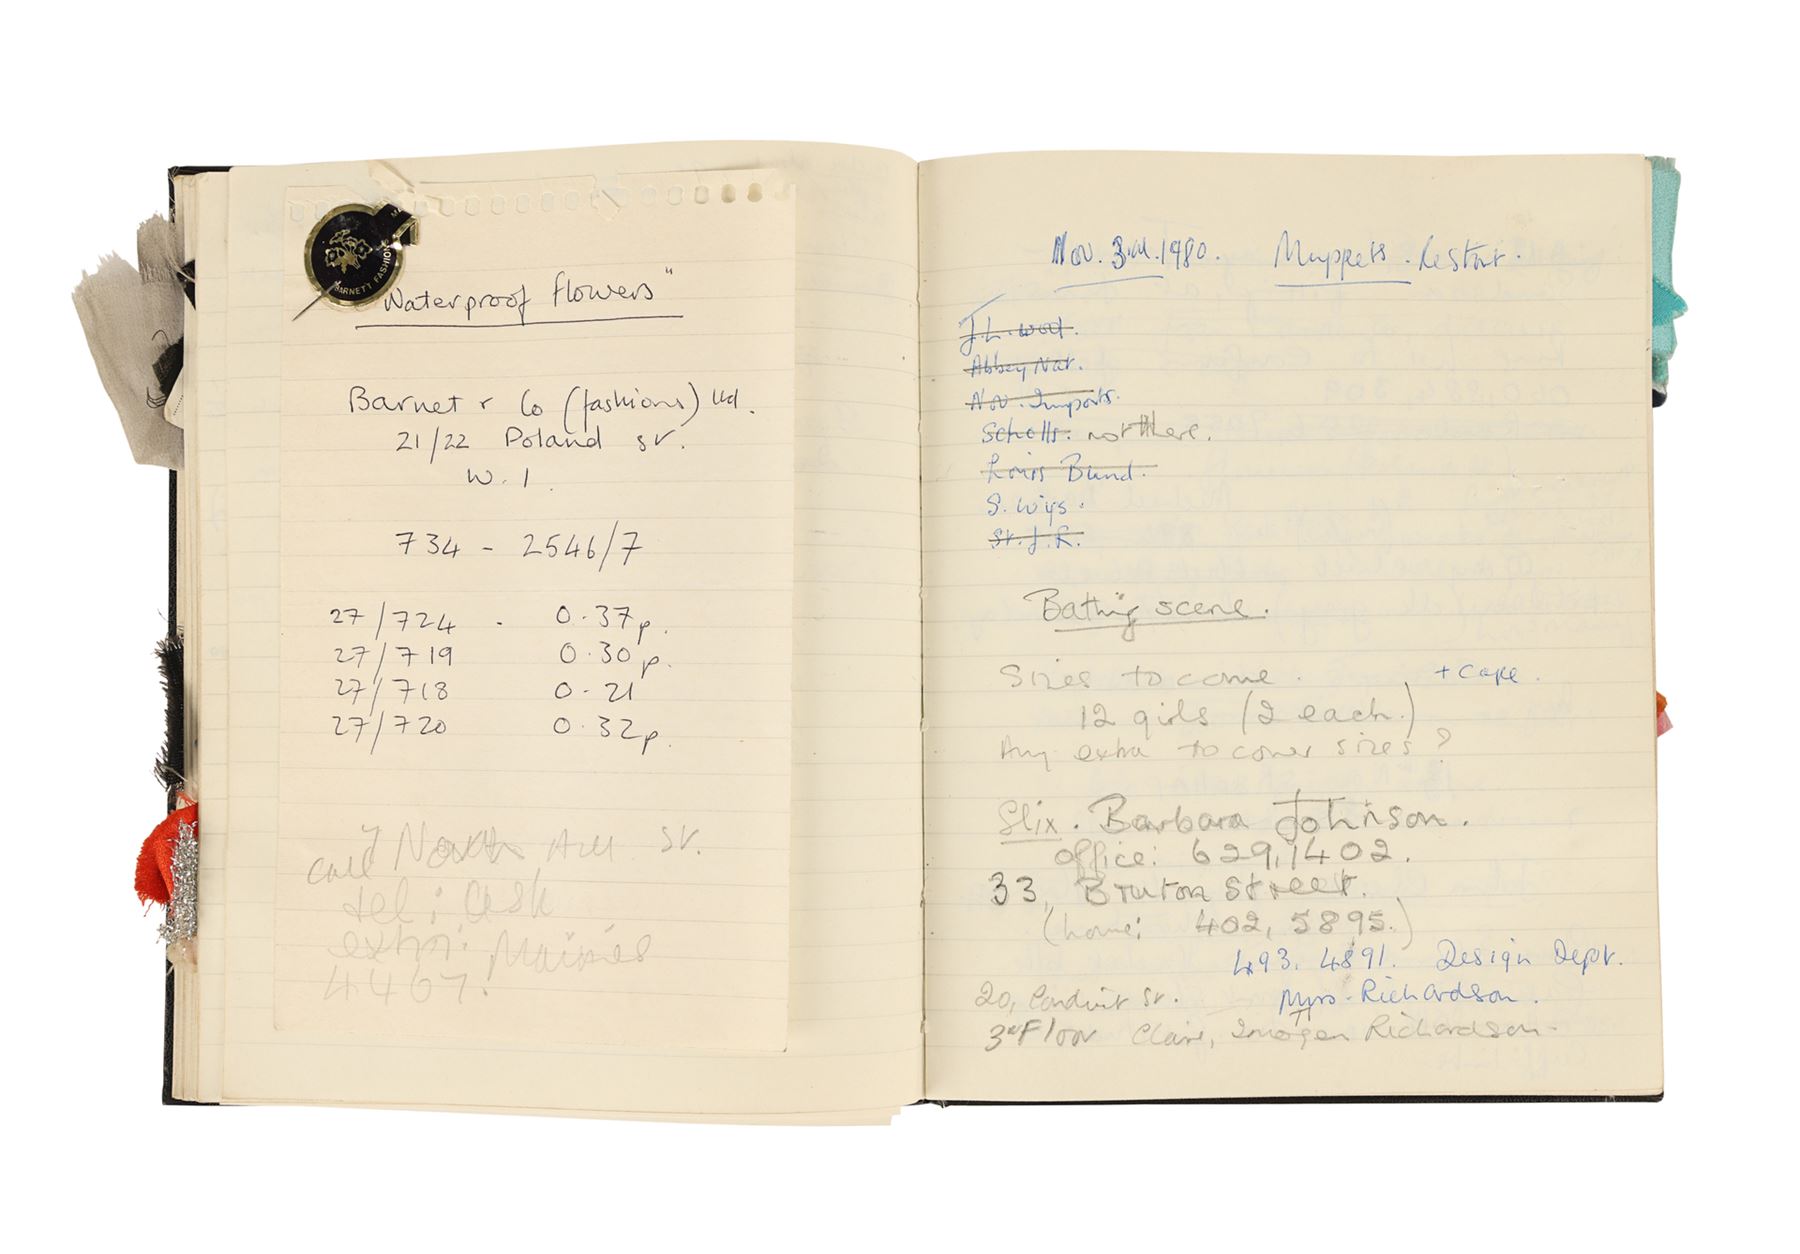 BARNETT FASHION
"Waterproof flowers"
Barnet & Co (fashions) Ltd.
21/22 Poland St.
W.1.
734 - 2546/7
27/724 - 0.37p.
27/719 0.30p.
27/718 0.21
27/720 0.32p.
7 North Aud. St.
call
tel: ask
extn:
4467.
Nov. 3rd. 1980. Muppets. Restart.
J.L. wood.
Abbey Nat.
Nov. Imports.
Scholls. not there.
Louis Bund.
S. Wigs.
St. J.R.
Bathing scene.
Sizes to come. + cape.
12 girls (2 each.)
Any extra to cover sizes?
Slix. Barbara Johnson.
office: 629,1402.
33, Bruton Street.
(home: 402, 5895.)
493. 4891. Design Dept.
20, Conduit St. Mrs. Richardson.
3rd Floor Claire, Imogen Richardson-